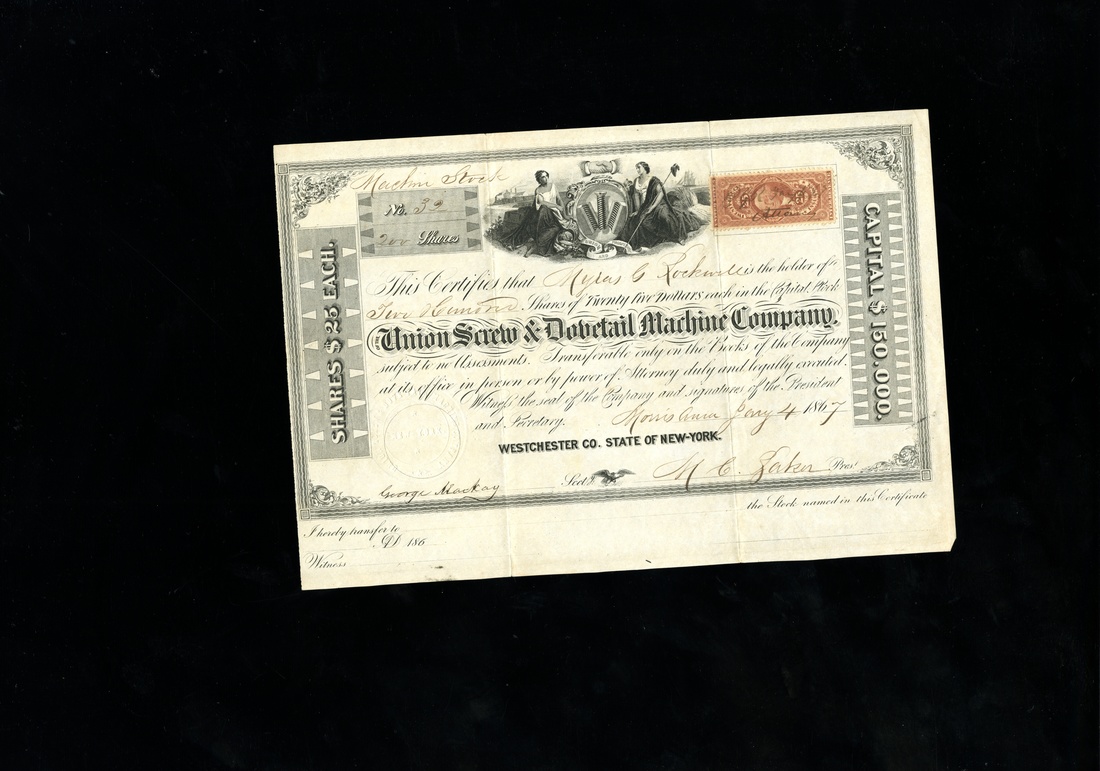 Machine Stock
No. 32
200 Shares
SHARES $ 25 EACH.
CAPITAL $ 150,000.
This Certifies that Myras C Rockwell is the holder of
Two Hundred Shares of Twenty five Dollars each in the Capital Stock
Union Screw & Dovetail Machine Company.
subject to no Assessments. Transferable only on the Books of the Company
at its office in person or by power of Attorney duly and legally executed.
Witness the seal of the Company and signatures of the President
and Secretary. Morrisania Jany 4 1867
WESTCHESTER CO. STATE OF NEW-YORK.
George Mackay Sect'y M C Baker Pres't
I hereby transfer to the Stock named in this Certificate
AD 186
Witness